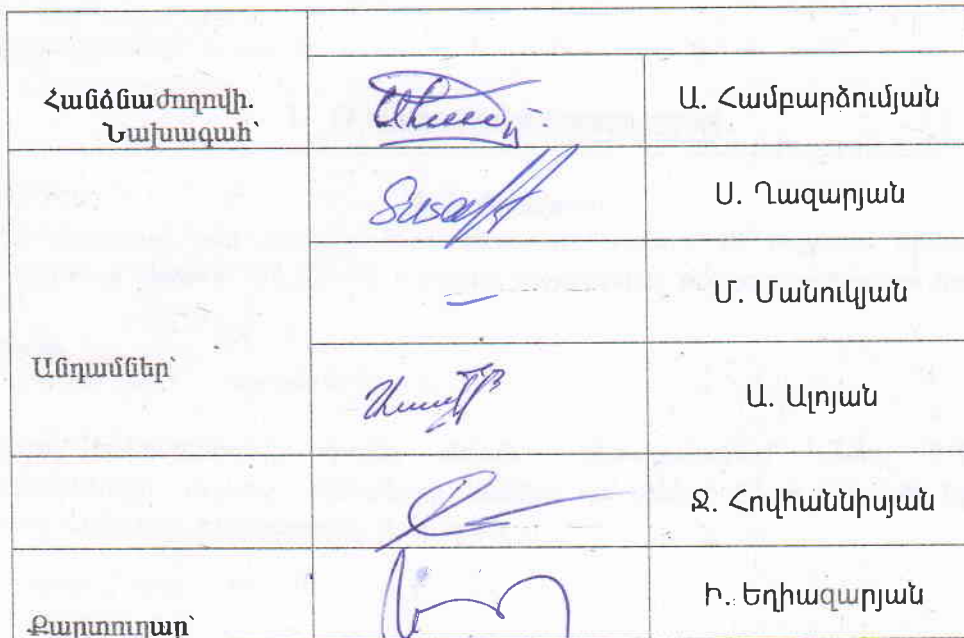 Հանձնաժողովի.
Նախագահ՝
Ա. Համբարձումյան
Ս. Ղազարյան
Մ. Մանուկյան
Անդամներ՝
Ա. Ալոյան
Ջ. Հովհաննիսյան
Քարտուղար՝
Ի. Եղիազարյան